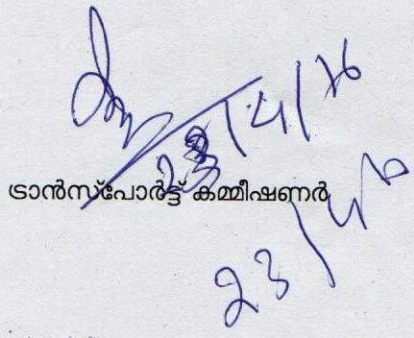 23/4/26
ട്രാൻസ്പോർട്ട് കമ്മീഷണർ
23/4/26